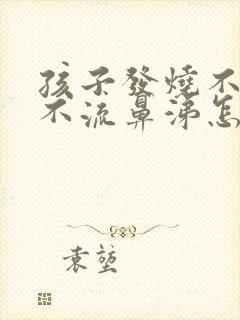 孩子發燒不
不流鼻涕怎
袁堃